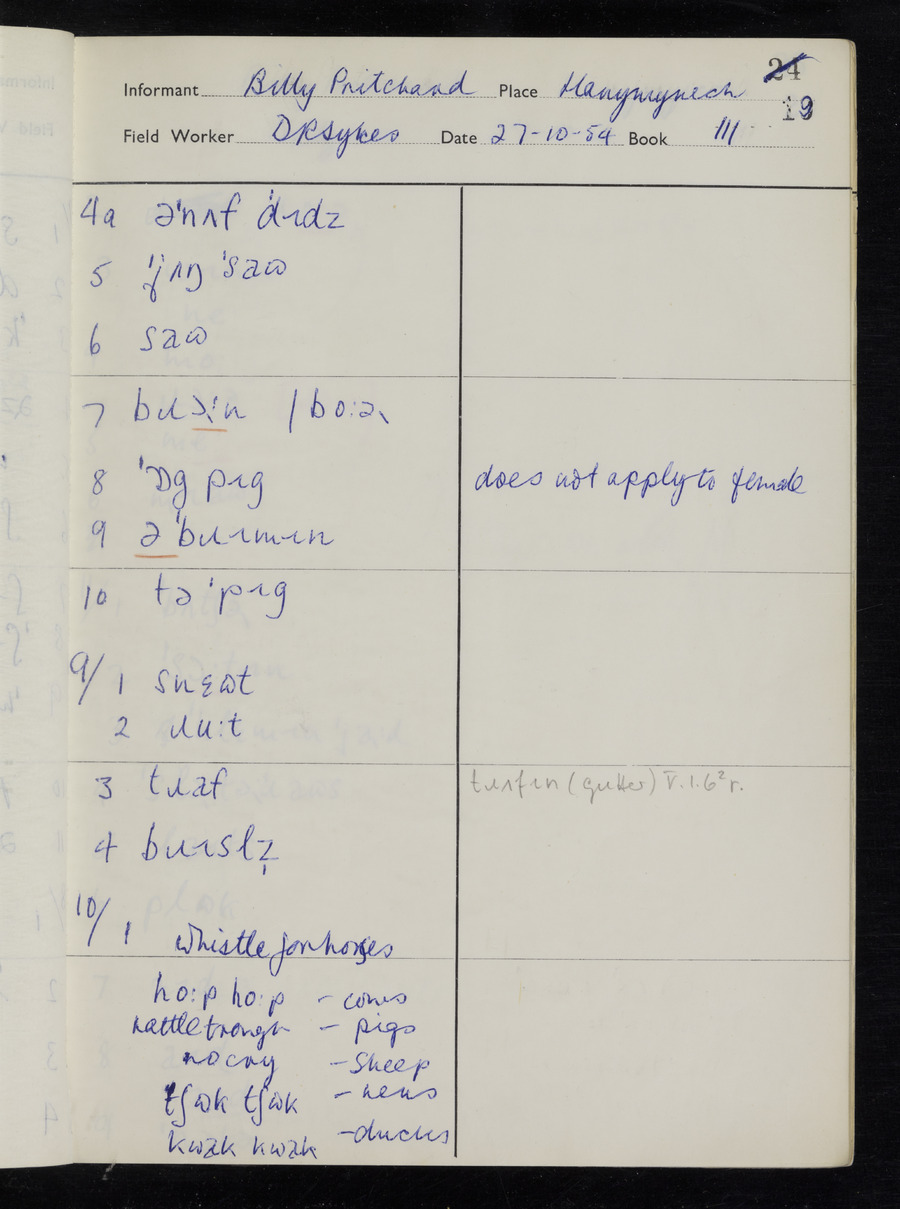 24
Informant Billy Pritchard Place Llanymynech
19
Field Worker DRSykes Date 27-10-54 Book III
4a ə'nʌf 'ɹɪdz
5 'jʌŋ 'saω
6 saω
7 bɹə:n / bo:ə
8 'ɒg pɪg does not apply to female
9 ə'bɹɪmɪn
10 tə 'pɪg
9/ 1 snɛωt
2 ɹu:t
3 tɹaf tɹʌfɪn (gutter) V.1.6² r.
4 bɹɪslz̩
10/ 1 whistle for horses
ho:p ho:p – cows
rattle trough – pigs
no cry – sheep
tʃωk tʃωk – hens
kwak kwak – ducks